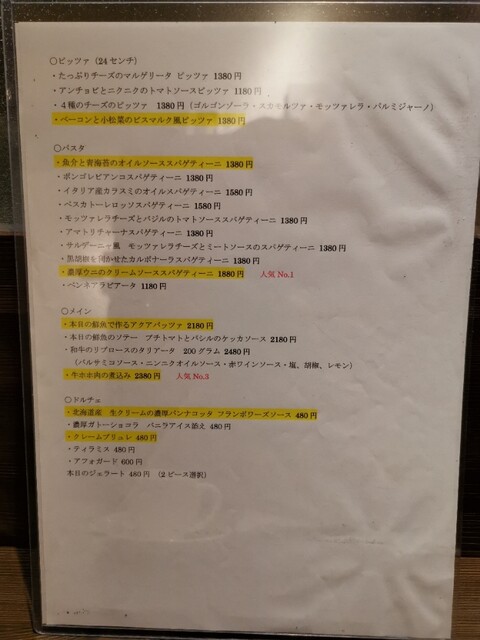 ○ピッツァ（24センチ）
・たっぷりチーズのマルゲリータ ピッツァ 1380円
・アンチョビとニクニクのトマトソースピッツァ 1180円
・４種のチーズのピッツァ 1380円（ゴルゴンゾーラ・スカモルツァ・モッツァレラ・パルミジャーノ）
・ベーコンと小松菜のビスマルク風ピッツァ 1380円
○パスタ
・魚介と青海苔のオイルソーススパゲティーニ 1380円
・ボンゴレビアンコスパゲティーニ 1380円
・イタリア産カラスミのオイルスパゲティーニ 1580円
・ペスカトーレロッソスパゲティーニ 1580円
・モッツァレラチーズとバジルのトマトソーススパゲティーニ 1380円
・アマトリチャーナスパゲティーニ 1380円
・サルデーニャ風 モッツァレラチーズとミートソースのスパゲティーニ 1380円
・黒胡椒を利かせたカルボナーラスパゲティーニ 1380円
・濃厚ウニのクリームソーススパゲティーニ 1880円 人気 No.1
・ペンネアラビアータ 1180円
○メイン
・本日の鮮魚で作るアクアパッツァ 2180円
・本日の鮮魚のソテー プチトマトとバシルのケッカソース 2180円
・和牛のリブロースのタリアータ 200グラム 2480円
（バルサミコソース・ニンニクオイルソース・赤ワインソース・塩、胡椒、レモン）
・牛ホホ肉の煮込み 2380円 人気 No.3
○ドルチェ
・北海道産 生クリームの濃厚パンナコッタ フランボワーズソース 480円
・濃厚ガトーショコラ バニラアイス添え 480円
・クレームブリュレ 480円
・ティラミス 480円
・アフォガード 600円
本日のジェラート 480円 （2ピース選択）